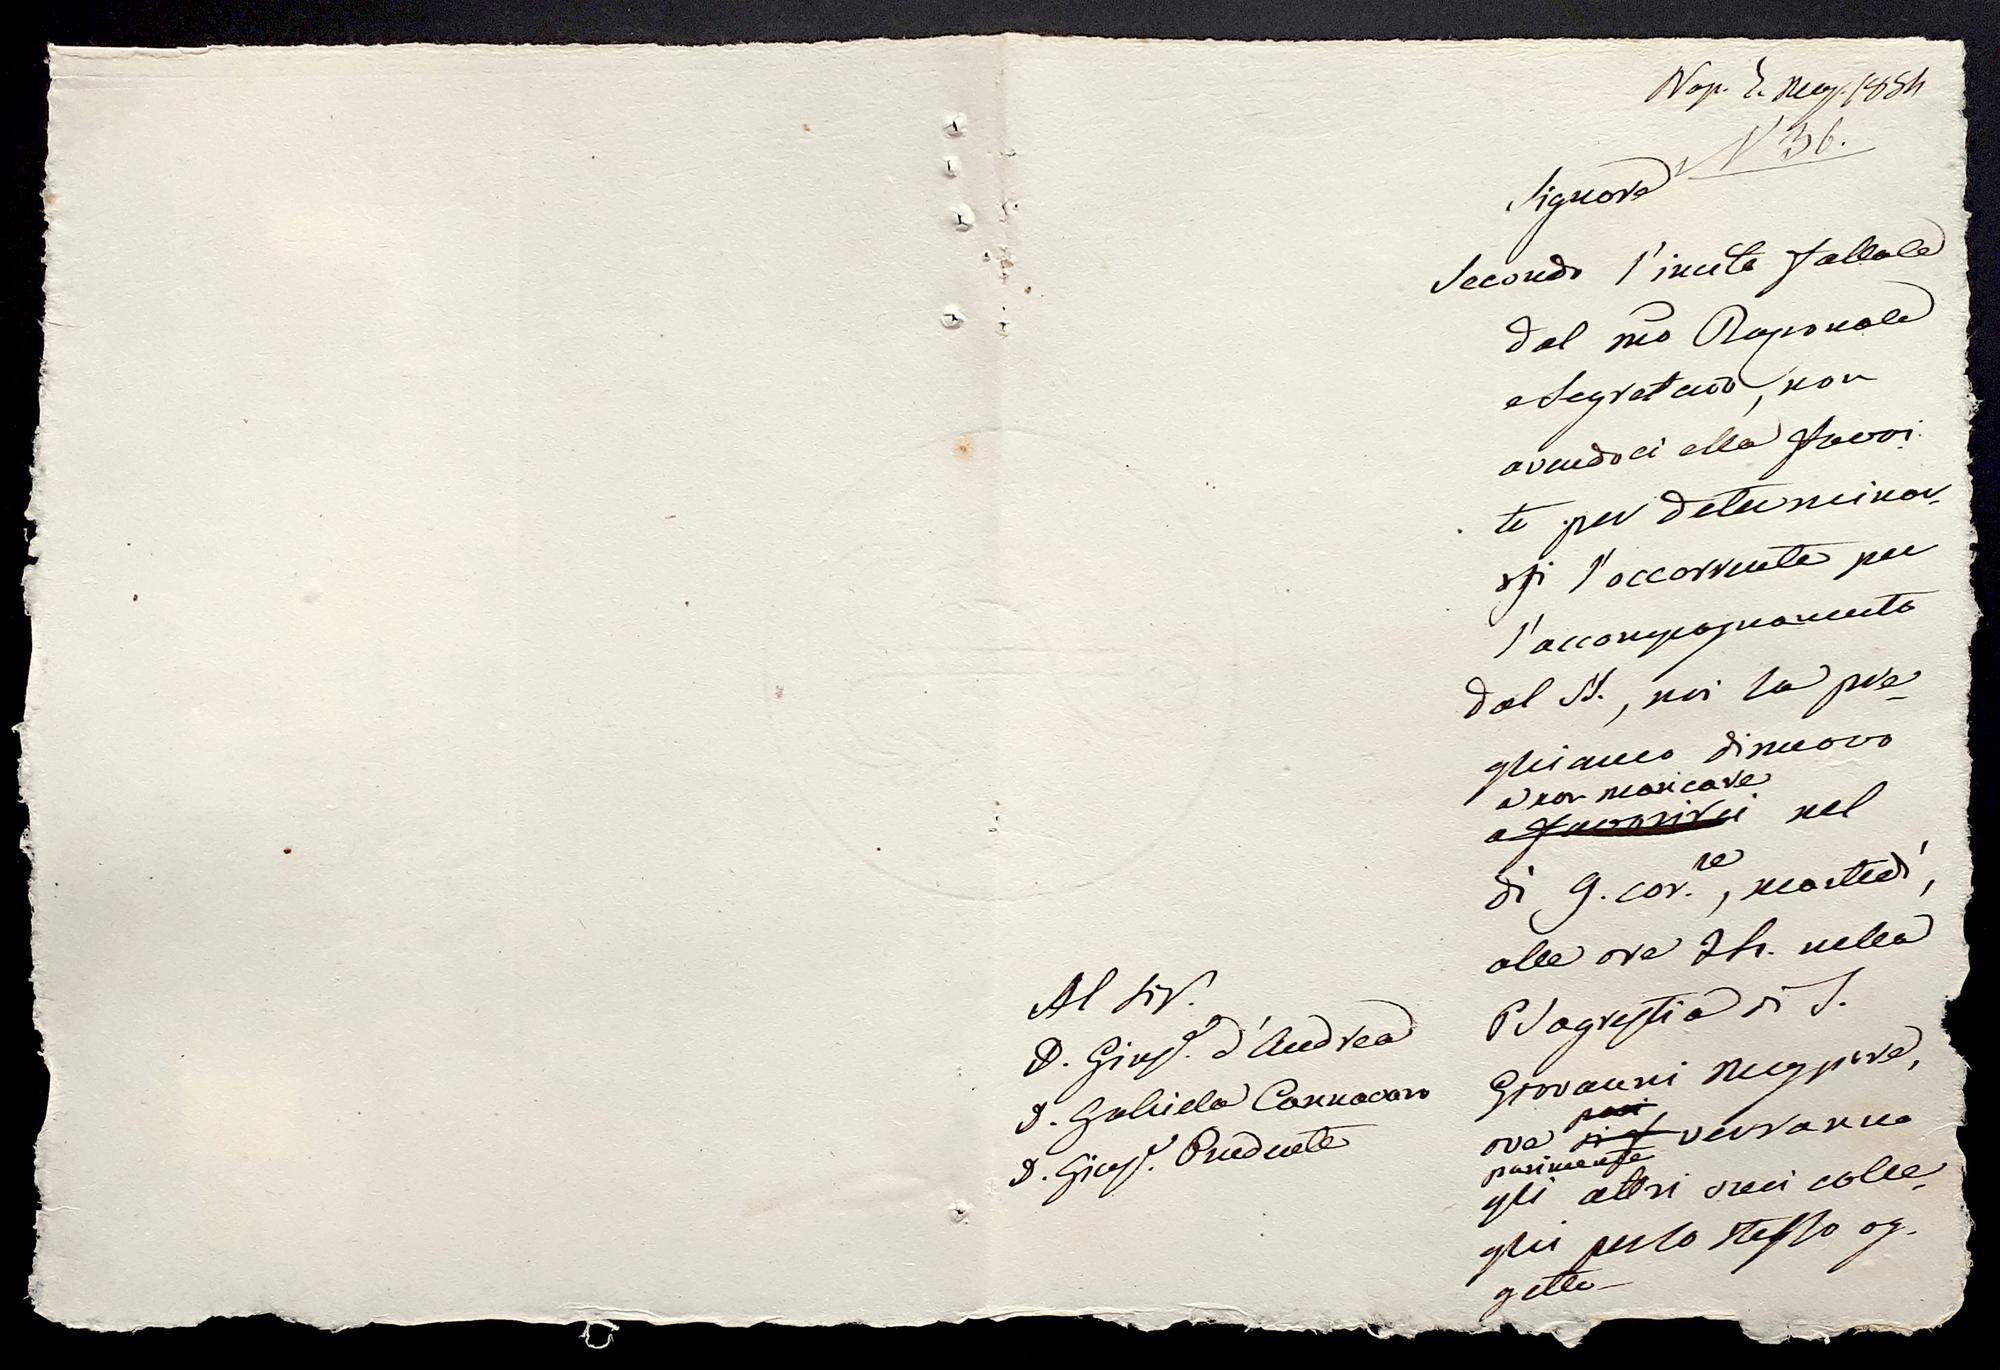 Nap. Mag. 1854
N° 36.
Signore
Secondo l'invito fattole
dal nro Razionale
e Segretario, non
avendoci ella favori
ti per determinar-
si l'occorrente per
l'accompagnamento
del SS., noi la pre-
ghiamo di nuovo
a non mancare
a favorirci nel
dì 9. cor.te, martedì,
alle ore 24. nella
Sagrestia di S.
Giovanni Maggiore,
ove verranno
parimente
gli altri suoi colle-
ghi per lo stesso og-
getto
Al Sig.r
D. Gius.e d'Andrea
D. Gabriele Cannavaro
D. Gius.e Prudente